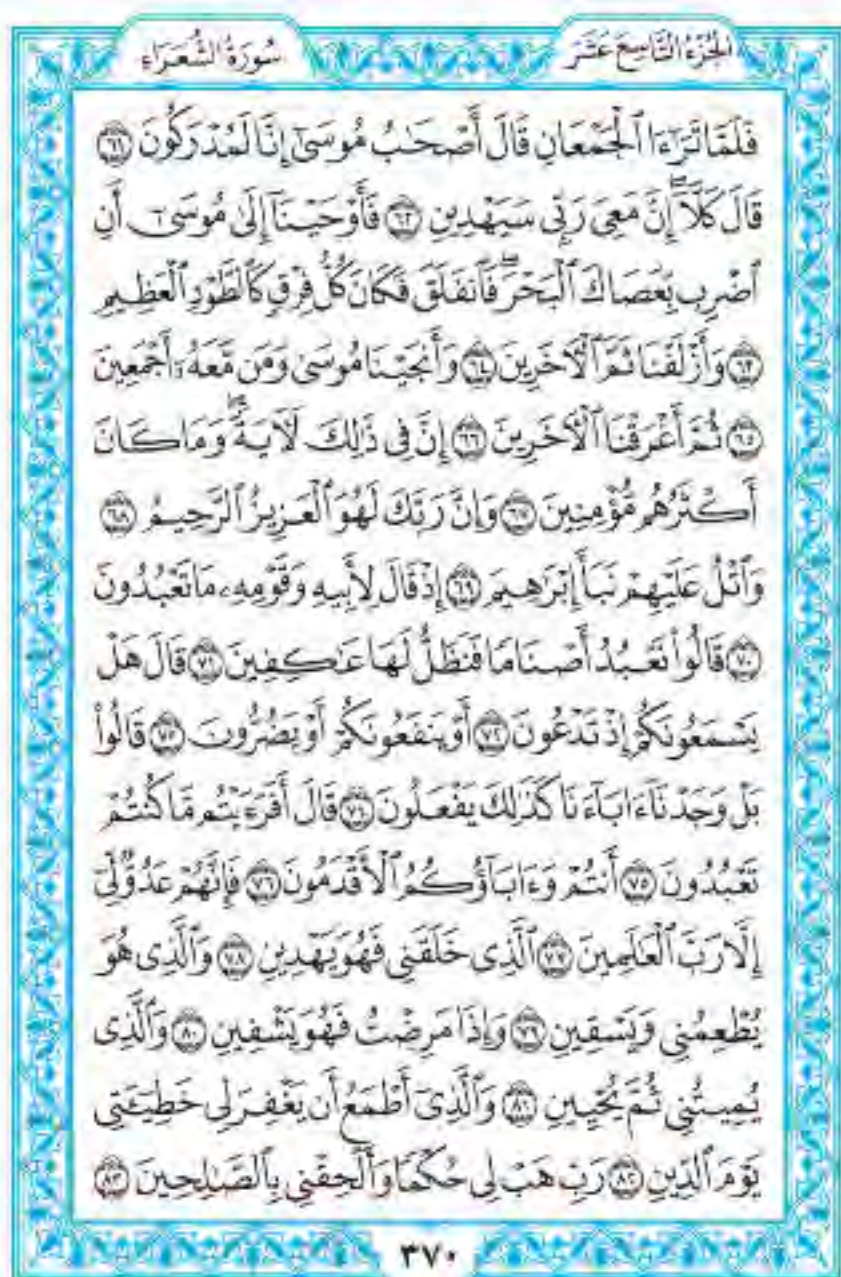 الجُزْءُ التَّاسِعَ عَشَرَ
سُورَةُ الشُّعَرَاءِ
فَلَمَّا تَرَٰٓءَا ٱلْجَمْعَانِ قَالَ أَصْحَٰبُ مُوسَىٰٓ إِنَّا لَمُدْرَكُونَ ٦١
قَالَ كَلَّآ ۖ إِنَّ مَعِىَ رَبِّى سَيَهْدِينِ ٦٢ فَأَوْحَيْنَآ إِلَىٰ مُوسَىٰٓ أَنِ
ٱضْرِب بِّعَصَاكَ ٱلْبَحْرَ ۖ فَٱنفَلَقَ فَكَانَ كُلُّ فِرْقٍ كَٱلطَّوْدِ ٱلْعَظِيمِ
٦٣ وَأَزْلَفْنَا ثَمَّ ٱلْءَاخَرِينَ ٦٤ وَأَنجَيْنَا مُوسَىٰ وَمَن مَّعَهُۥٓ أَجْمَعِينَ
٦٥ ثُمَّ أَغْرَقْنَا ٱلْءَاخَرِينَ ٦٦ إِنَّ فِى ذَٰلِكَ لَءَايَةً ۖ وَمَا كَانَ
أَكْثَرُهُم مُّؤْمِنِينَ ٦٧ وَإِنَّ رَبَّكَ لَهُوَ ٱلْعَزِيزُ ٱلرَّحِيمُ ٦٨
وَٱتْلُ عَلَيْهِمْ نَبَأَ إِبْرَٰهِيمَ ٦٩ إِذْ قَالَ لِأَبِيهِ وَقَوْمِهِۦ مَا تَعْبُدُونَ
٧٠ قَالُوا۟ نَعْبُدُ أَصْنَامًا فَنَظَلُّ لَهَا عَٰكِفِينَ ٧١ قَالَ هَلْ
يَسْمَعُونَكُمْ إِذْ تَدْعُونَ ٧٢ أَوْ يَنفَعُونَكُمْ أَوْ يَضُرُّونَ ٧٣ قَالُوا۟
بَلْ وَجَدْنَآ ءَابَآءَنَا كَذَٰلِكَ يَفْعَلُونَ ٧٤ قَالَ أَفَرَءَيْتُم مَّا كُنتُمْ
تَعْبُدُونَ ٧٥ أَنتُمْ وَءَابَآؤُكُمُ ٱلْأَقْدَمُونَ ٧٦ فَإِنَّهُمْ عَدُوٌّ لِّىٓ
إِلَّا رَبَّ ٱلْعَٰلَمِينَ ٧٧ ٱلَّذِى خَلَقَنِى فَهُوَ يَهْدِينِ ٧٨ وَٱلَّذِى هُوَ
يُطْعِمُنِى وَيَسْقِينِ ٧٩ وَإِذَا مَرِضْتُ فَهُوَ يَشْفِينِ ٨٠ وَٱلَّذِى
يُمِيتُنِى ثُمَّ يُحْيِينِ ٨١ وَٱلَّذِىٓ أَطْمَعُ أَن يَغْفِرَ لِى خَطِيٓـَٔتِى
يَوْمَ ٱلدِّينِ ٨٢ رَبِّ هَبْ لِى حُكْمًا وَأَلْحِقْنِى بِٱلصَّٰلِحِينَ ٨٣
٣٧٠